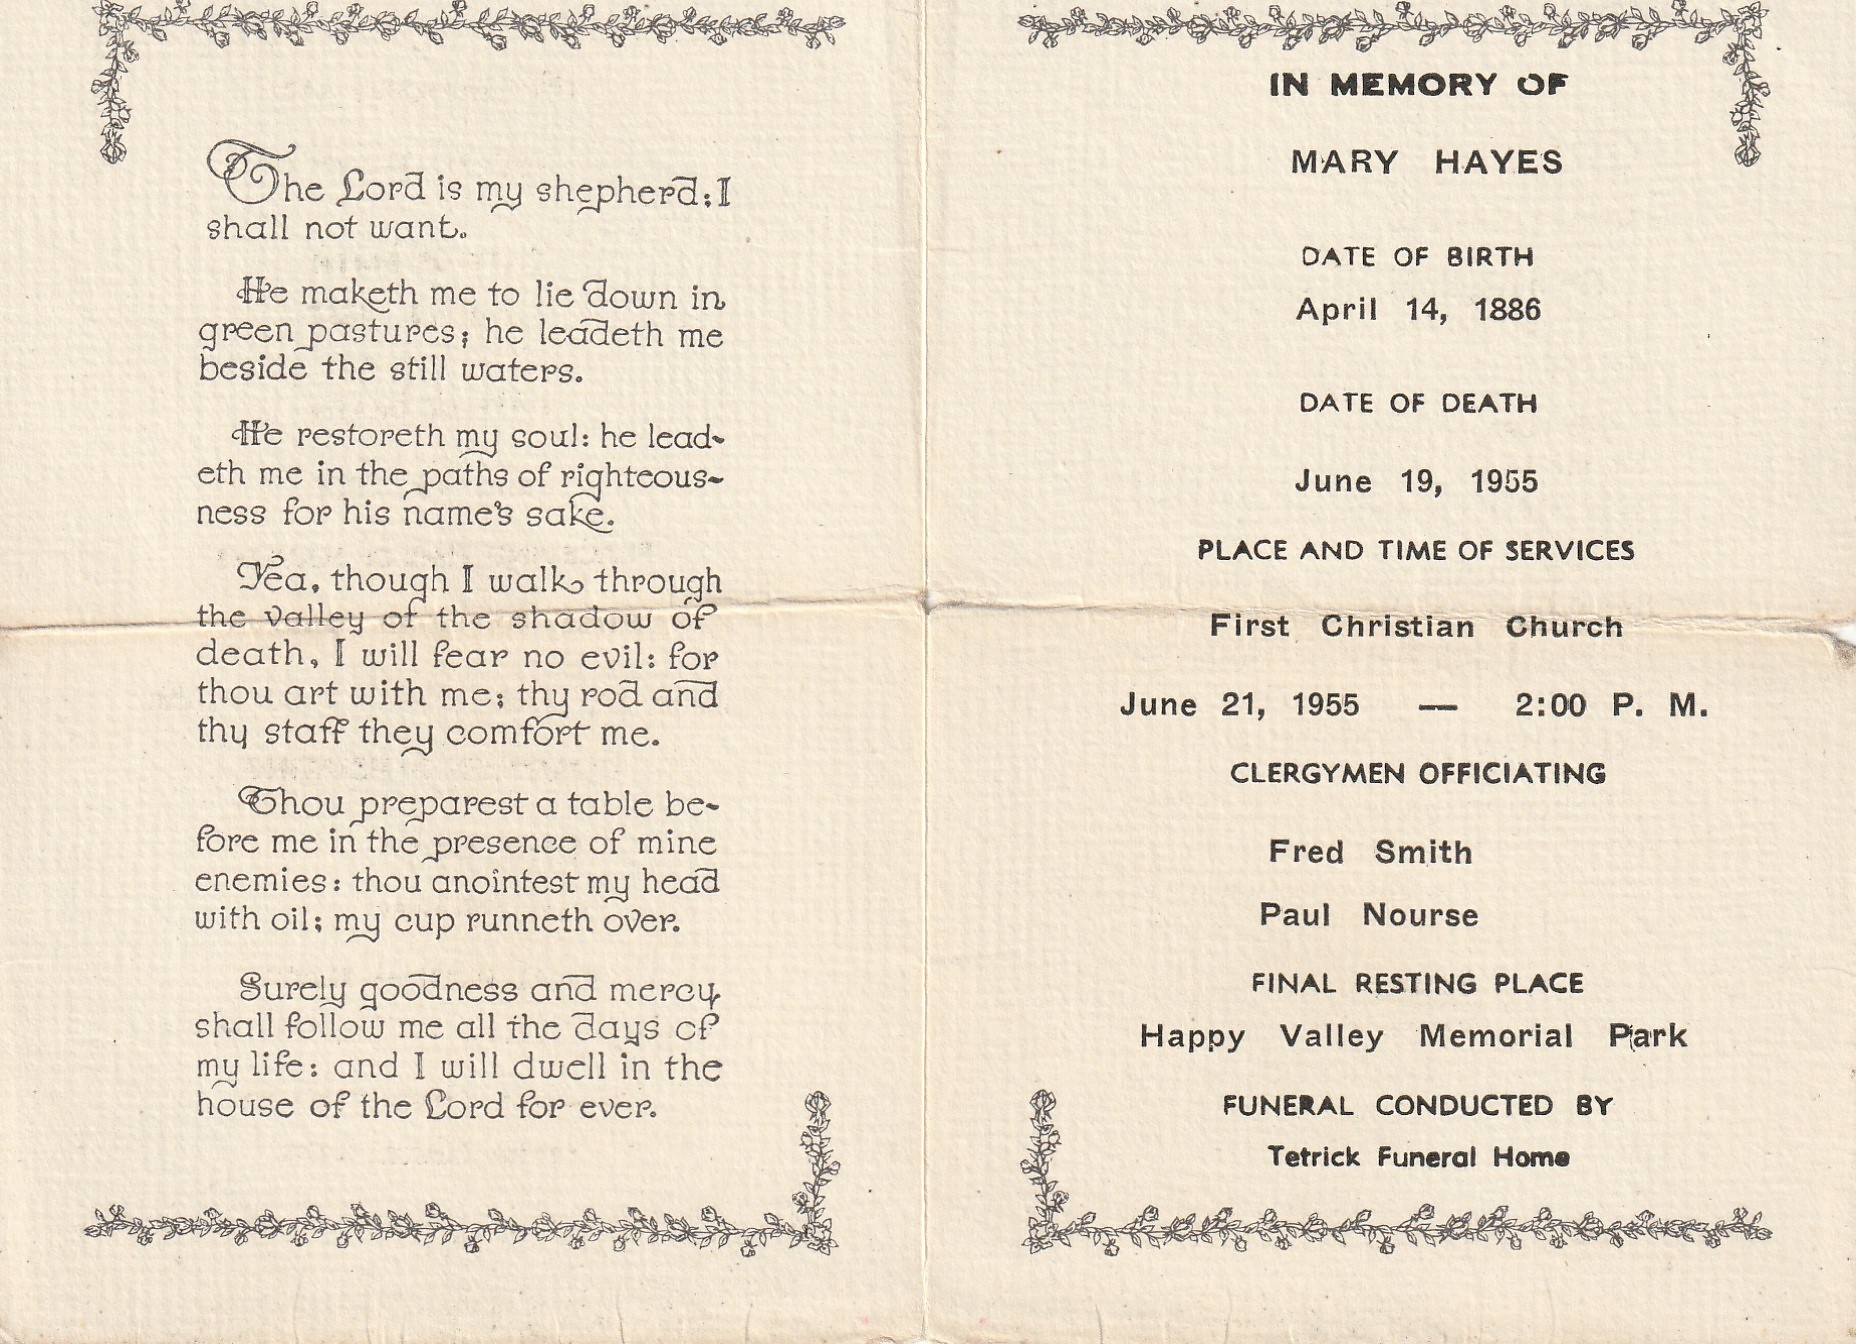 The Lord is my shepherd; I
shall not want.
He maketh me to lie down in
green pastures; he leadeth me
beside the still waters.
He restoreth my soul: he lead-
eth me in the paths of righteous-
ness for his name's sake.
Yea, though I walk through
the valley of the shadow of
death, I will fear no evil: for
thou art with me; thy rod and
thy staff they comfort me.
Thou preparest a table be-
fore me in the presence of mine
enemies: thou anointest my head
with oil; my cup runneth over.
Surely goodness and mercy
shall follow me all the days of
my life: and I will dwell in the
house of the Lord for ever.
IN MEMORY OF
MARY HAYES
DATE OF BIRTH
April 14, 1886
DATE OF DEATH
June 19, 1955
PLACE AND TIME OF SERVICES
First Christian Church
June 21, 1955 — 2:00 P. M.
CLERGYMEN OFFICIATING
Fred Smith
Paul Nourse
FINAL RESTING PLACE
Happy Valley Memorial Park
FUNERAL CONDUCTED BY
Tetrick Funeral Home